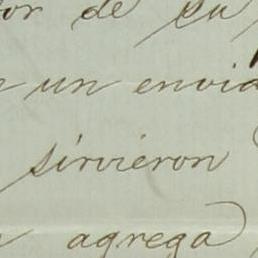 or de su
un envia
sirvieron
agrega